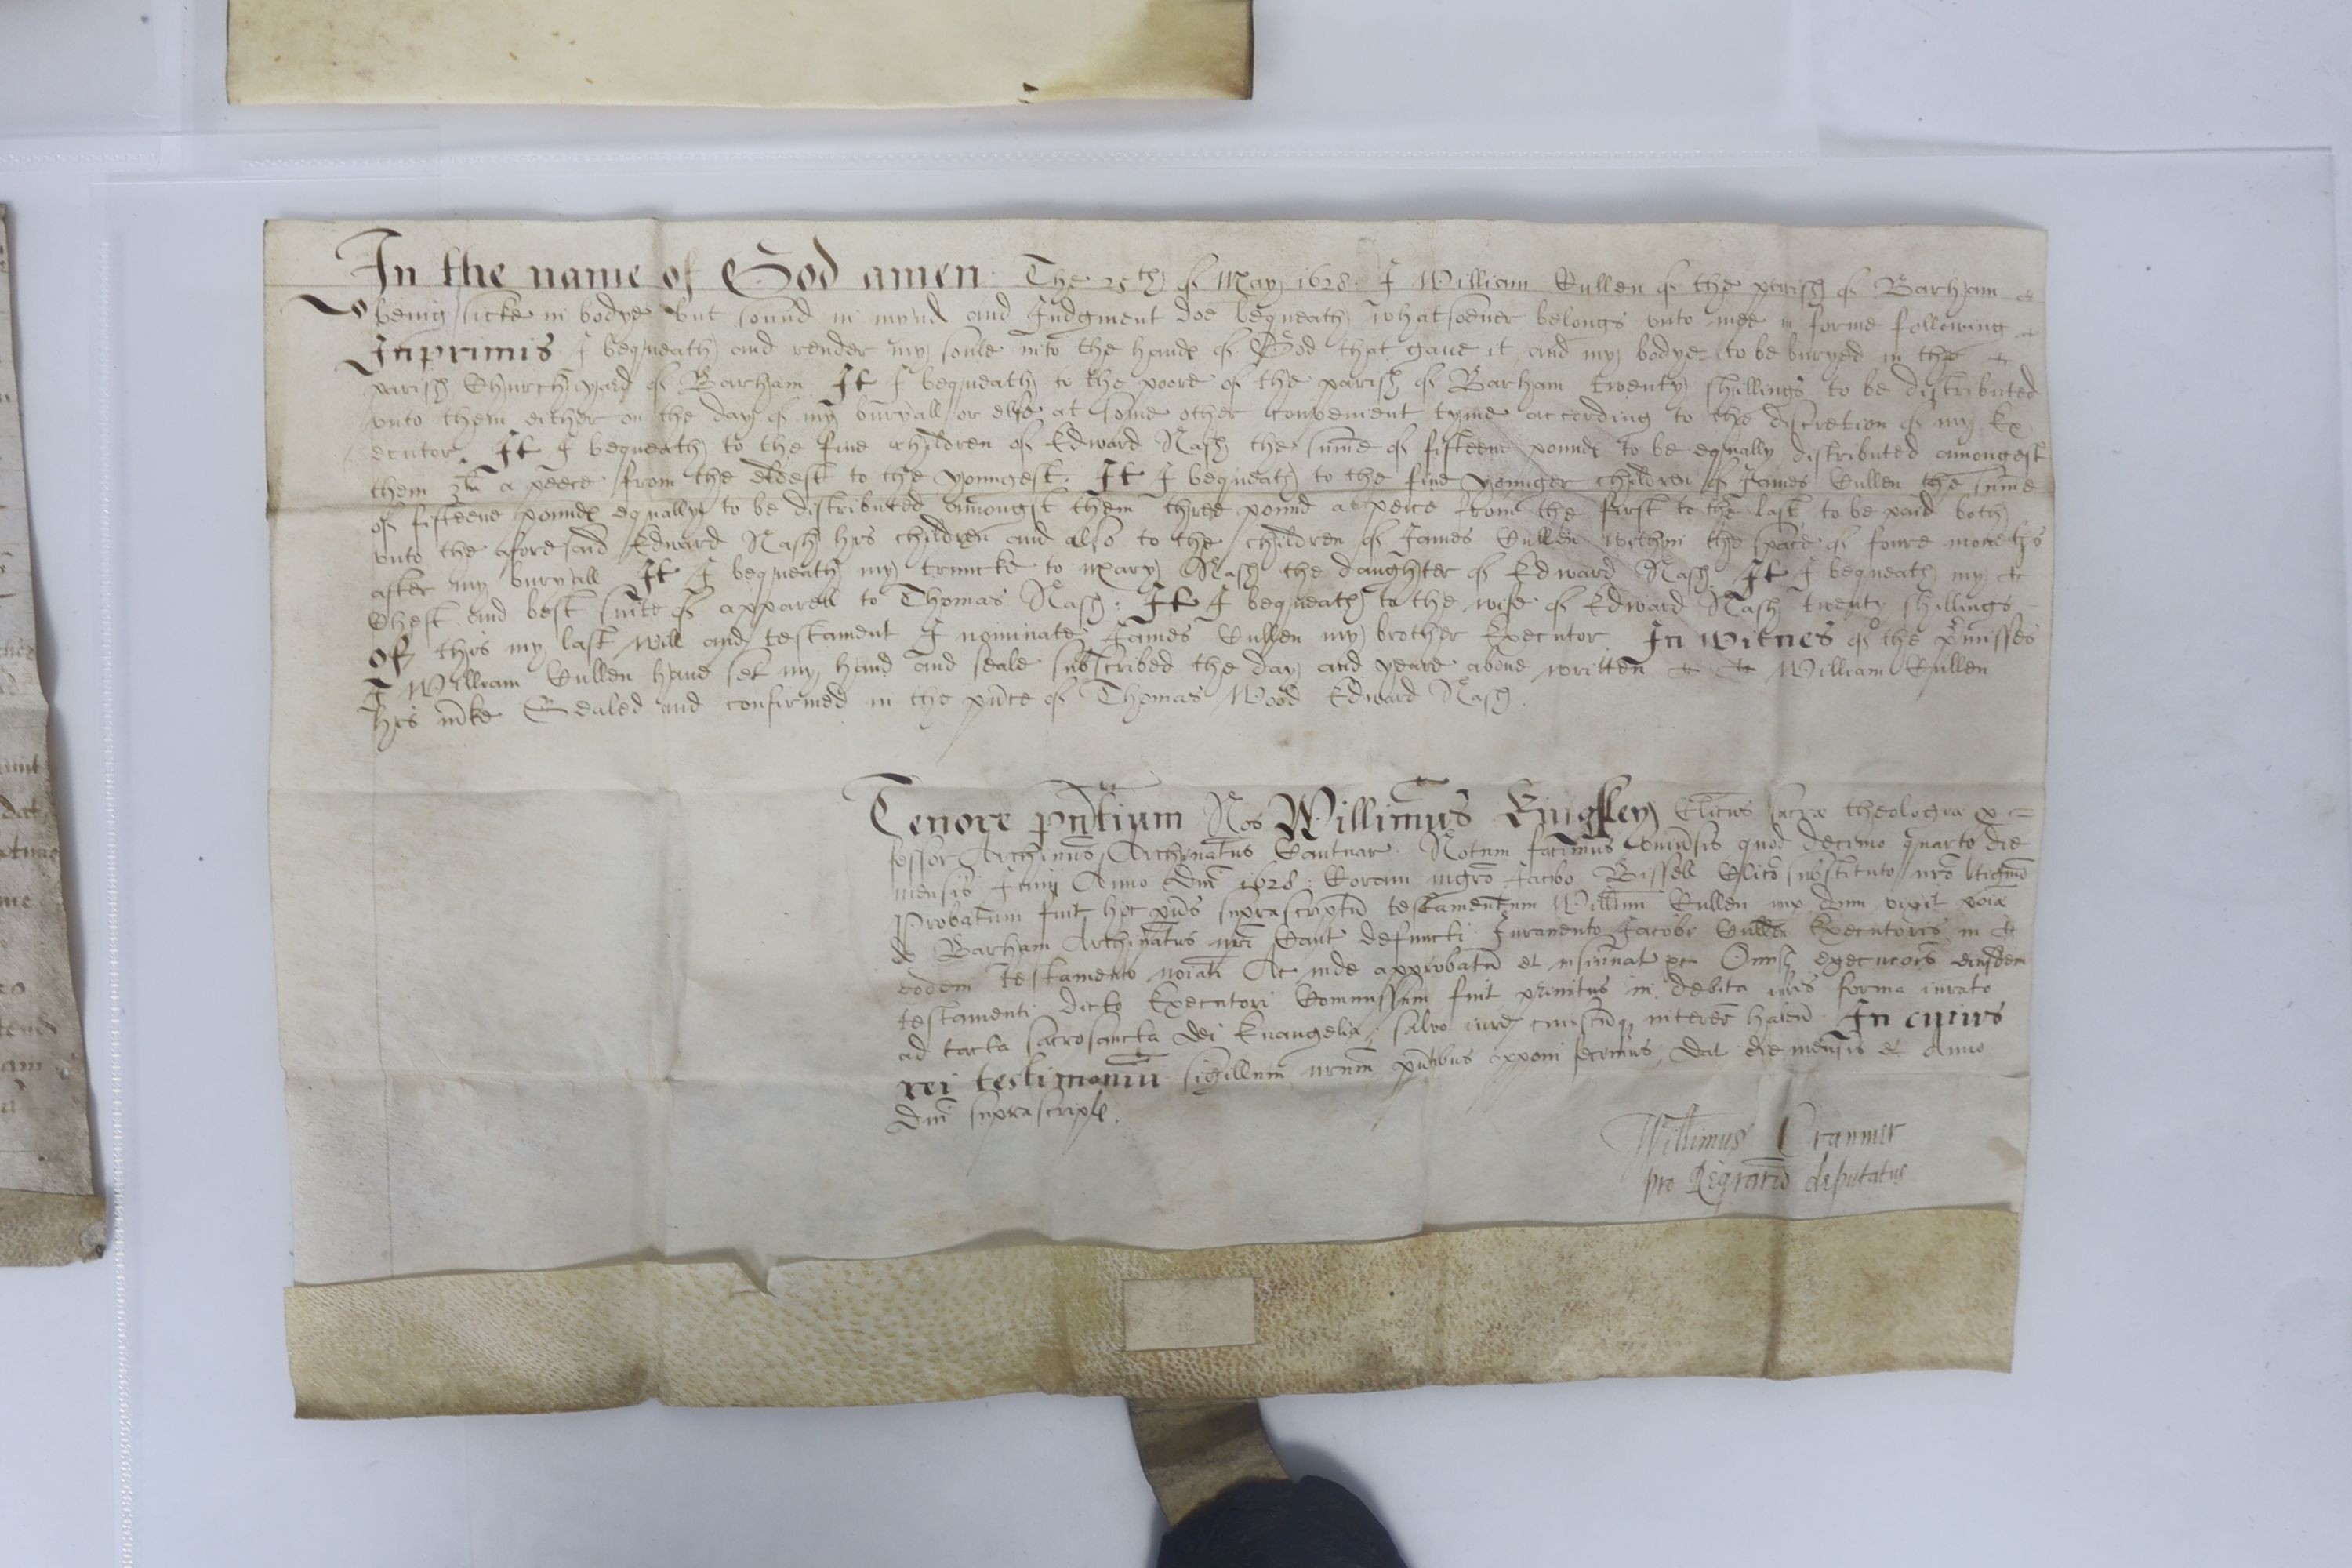 In the name of God amen. The 25th of May 1628. I William Cullen of the parish of Barham &
being sicke in bodye but sound in mynd and Iudgment doe bequeath whatsoeuer belongs vnto mee in forme following &
Inprimis I bequeath and render my soule into the hands of God that gaue it and my bodye to be buryed in the &
parish Church yard of Barham It I bequeath to the poore of the parish of Barham twenty shillings to be distributed
vnto them either on the day of my buryall or else at some other convenient tyme according to the discretion of my Ex
ecutor. It I bequeath to the fiue children of Edward Nash the summe of fifteene pounds to be equally distributed amongest
them 3li a peece from the eldest to the youngest. It I bequeath to the fiue younger children of Iames Cullen the summe
of fifteene pounds equally to be distributed amongst them three pound a peece from the first to the last to be paid both
vnto the aforesaid Edward Nash his children and also to the children of Iames Cullen within the space of foure moneths
after my buryall It I bequeath my truncke to Mary Nash the daughter of Edward Nash. It I bequeath my &
Chest and best suite of apparell to Thomas Nash: It I bequeath to the wife of Edward Nash twenty shillings
Of this my last will and testament I nominate Iames Cullen my brother Executor. In witnes of the pmisses
I William Cullen haue set my hand and seale subscribed the day and yeare aboue written & & William Cullen
his mke Sealed and confirmed in the pnce of Thomas Wood Edward Nash.
Tenore pntium Nos Willimus Kingsley Clicus sacræ theologiæ p =
fessor Archinus Archinatus Cantuar Notum facimus vniusis quod decimo quarto die
mensis Iunij Anno dni 1628. Coram mgro Iacobo Bissell Clico substituto nro ltigmo
Probatum fuit hoc pns suprascriptu testamentum Willimi Cullen nup dum vixit poiæ
de Barham Archinatus nri Cant defuncti Iuramento Iacobi Cullen Executoris in &
eodem testamento noiati Ac inde approbatu et insinuat &c Onusq execucois eiusdem
testamenti dicto Executori Commissum fuit primitus in debita iuris forma iurato
ad tacta sacrosancta dei Euangelia, salvo iure cuiuscuq interesse haben In cuius
rei testimoniu sigillum nrum pntibus apponi fecimus, dat die mensis et Anno
dni suprascript.
Willimus Cranmer
pro Regrario deputatus